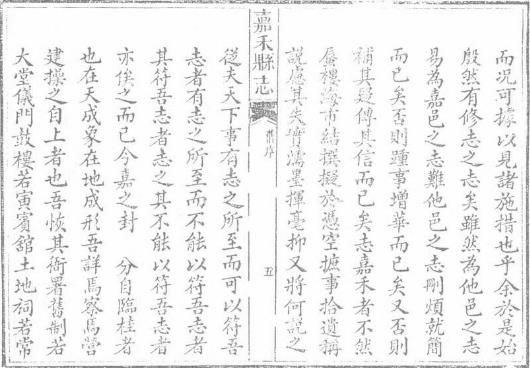 而況可據以見諸施措也乎余於是始
殷然有修志之志矣雖然為他邑之志
易為嘉邑之志難他邑之志刪煩就簡
而已矣否則踵事增華而已矣又否則
補其疑傳其信而已矣志嘉禾者不然
蜃樓海市結撰擬於憑空摭事拾遺稱
說慮其失實濡墨揮毫抑又將何說之
嘉禾縣志
舊序
五
從夫天下事有志之所至而可以符吾
志者有志之所至而不能以符吾志者
其符吾志者志之其不能以符吾志者
亦俟之而已今嘉之封 分自臨桂者
也在天成象在地成形吾詳焉察焉營
建操之自上者也吾恢其衙署舊制若
大堂儀門鼓樓若寅賓舘土地祠若常